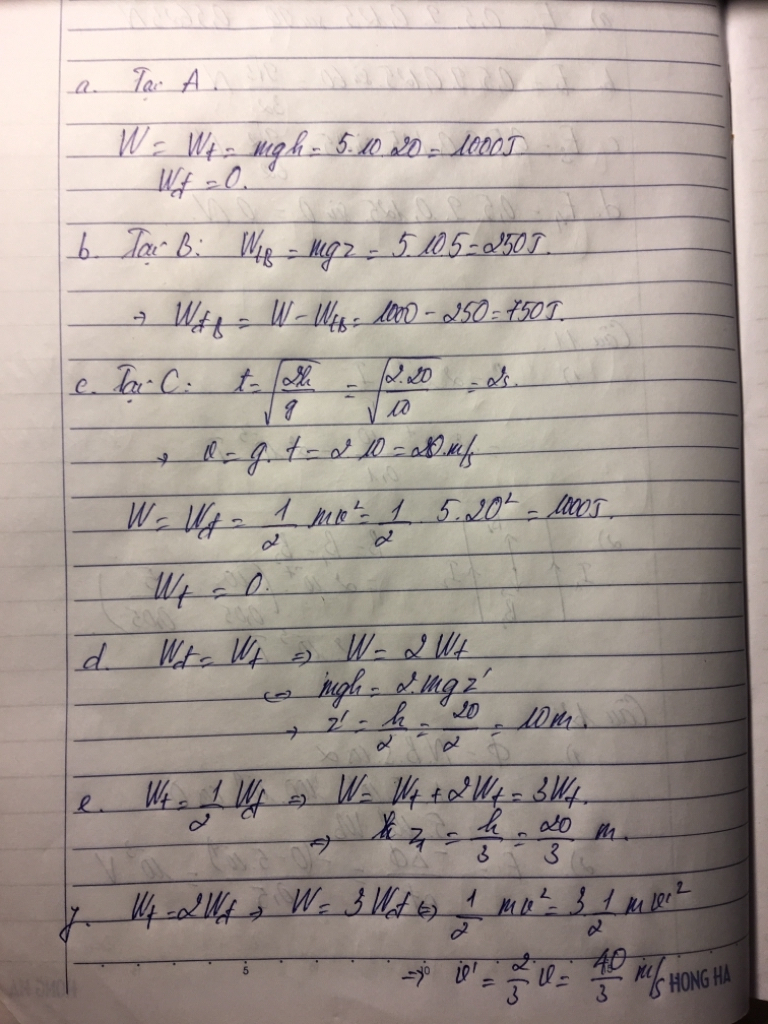 a. Tại A.
W = Wt = mgh = 5.10.20 = 1000J
Wđ = 0.
b. Tại B: WtB = mgz = 5.10.5 = 250J.
→ WđB = W - WtB = 1000 - 250 = 750J.
c. Tại C: t = √(2h/g) = √(2.20/10) = 2s.
→ v = g.t = 2.10 = 20 m/s
W = Wđ = 1/2 mv² = 1/2 . 5.20² = 1000J.
Wt = 0.
d. Wđ = Wt ⇒ W = 2Wt
⇔ mgh = 2.mgz'
→ z' = h/2 = 20/2 = 10m.
e. Wt = 1/2 Wđ ⇒ W = Wt + 2Wt = 3Wt.
⇒ z1 = h/3 = 20/3 m.
f. Wt = 2Wđ → W = 3Wđ ⇔ 1/2 mv² = 3 1/2 mv'²
⇒ v' = 2/3 v = 40/3 m/s HONG HA
5 10 15